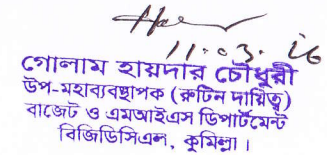 11.03.26
গোলাম হায়দার চৌধুরী
উপ-মহাব্যবস্থাপক (রুটিন দায়িত্ব)
বাজেট ও এমআইএস ডিপার্টমেন্ট
বিজিডিসিএল, কুমিল্লা।